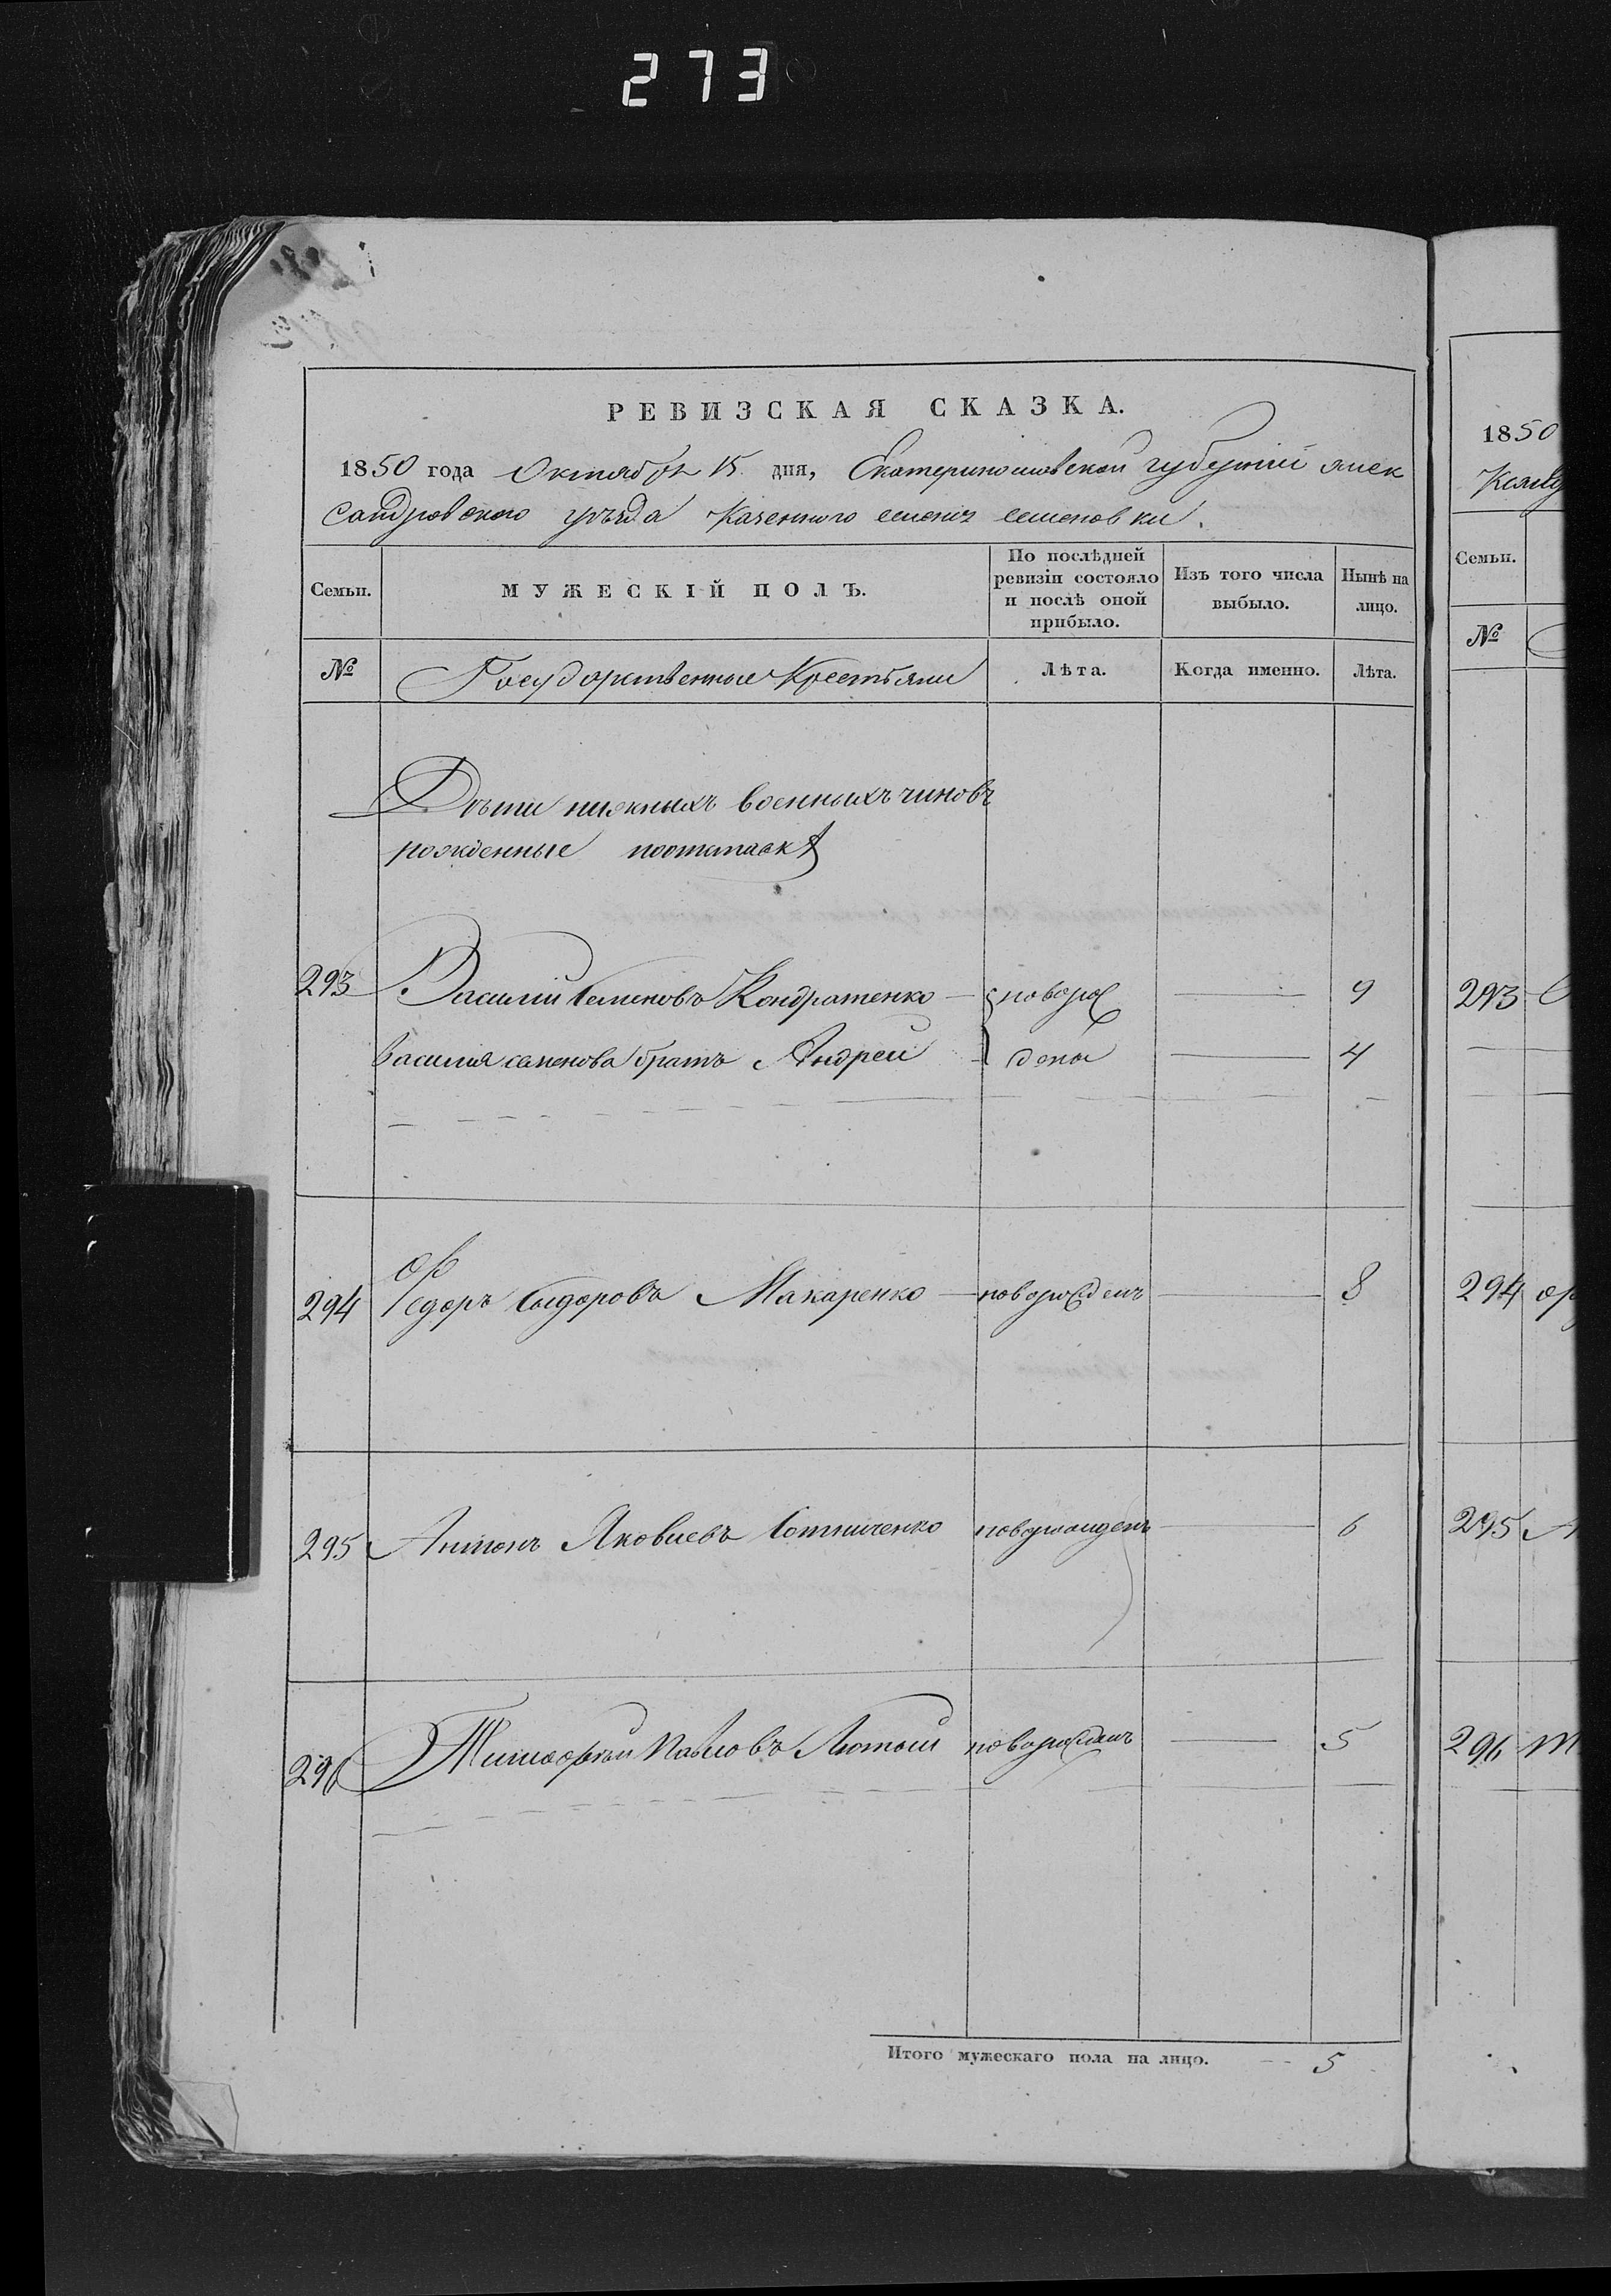 273
РЕВИЗСКАЯ СКАЗКА.
1850 года Октября 15 дня, Екатеринославской губернии алек
сандровского уезда Казенного селения семеновки.
Семьи.
МУЖЕСКІЙ ПОЛЪ.
По послѣдней
ревизіи состояло
и послѣ оной
прибыло.
Изъ того числа
выбыло.
Нынѣ на
лицо.
№
Государственные Крестьяне
Лѣта.
Когда именно.
Лѣта.
Дѣти нижныхъ военныхъ чиновъ
рожденные
293 Василий Семеновъ Кондратенко — новорож — 9
Василия семенова братъ Андрей — дены — 4
294 Федоръ Сыдоровъ Макаренко — новорожденъ — 8
295 Антонъ Яковлевъ Сотниченко новорожденъ — 6
296 Тимофей Павловъ Лютый новорожденъ — 5
Итого мужескаго пола на лицо. -- 5
1850
Семьи.
№
293
294
295
296